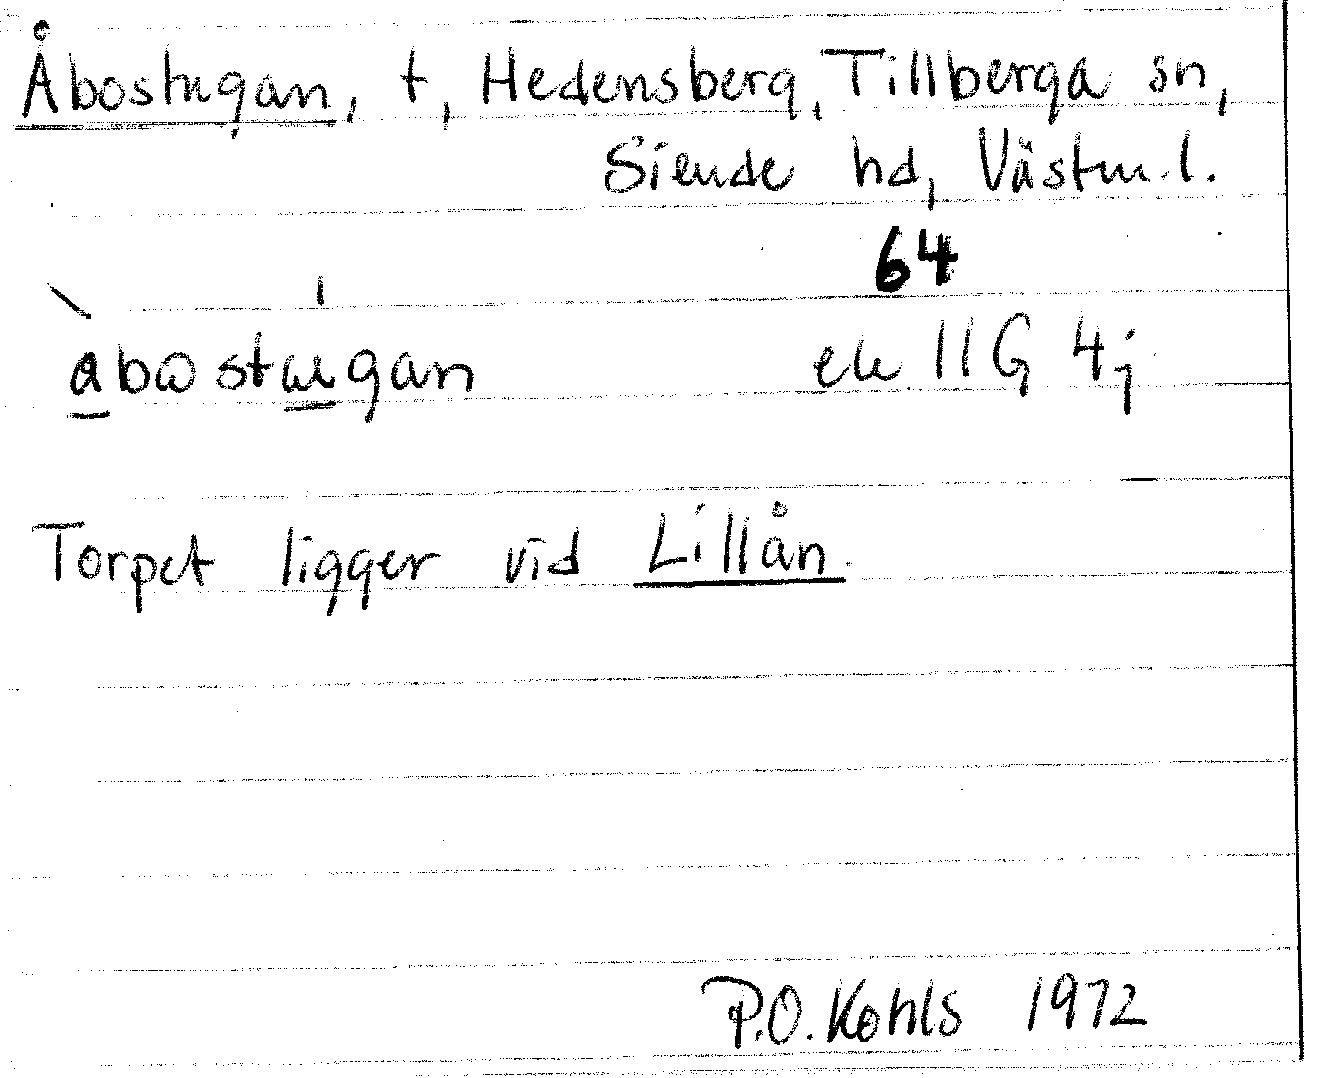 Åbostugan, t, Hedensberg, Tillberga sn,
Siende hd, Västm.l.
64
ek 11G 4j
Torpet ligger vid Lillån.
P.O. Kohls 1972